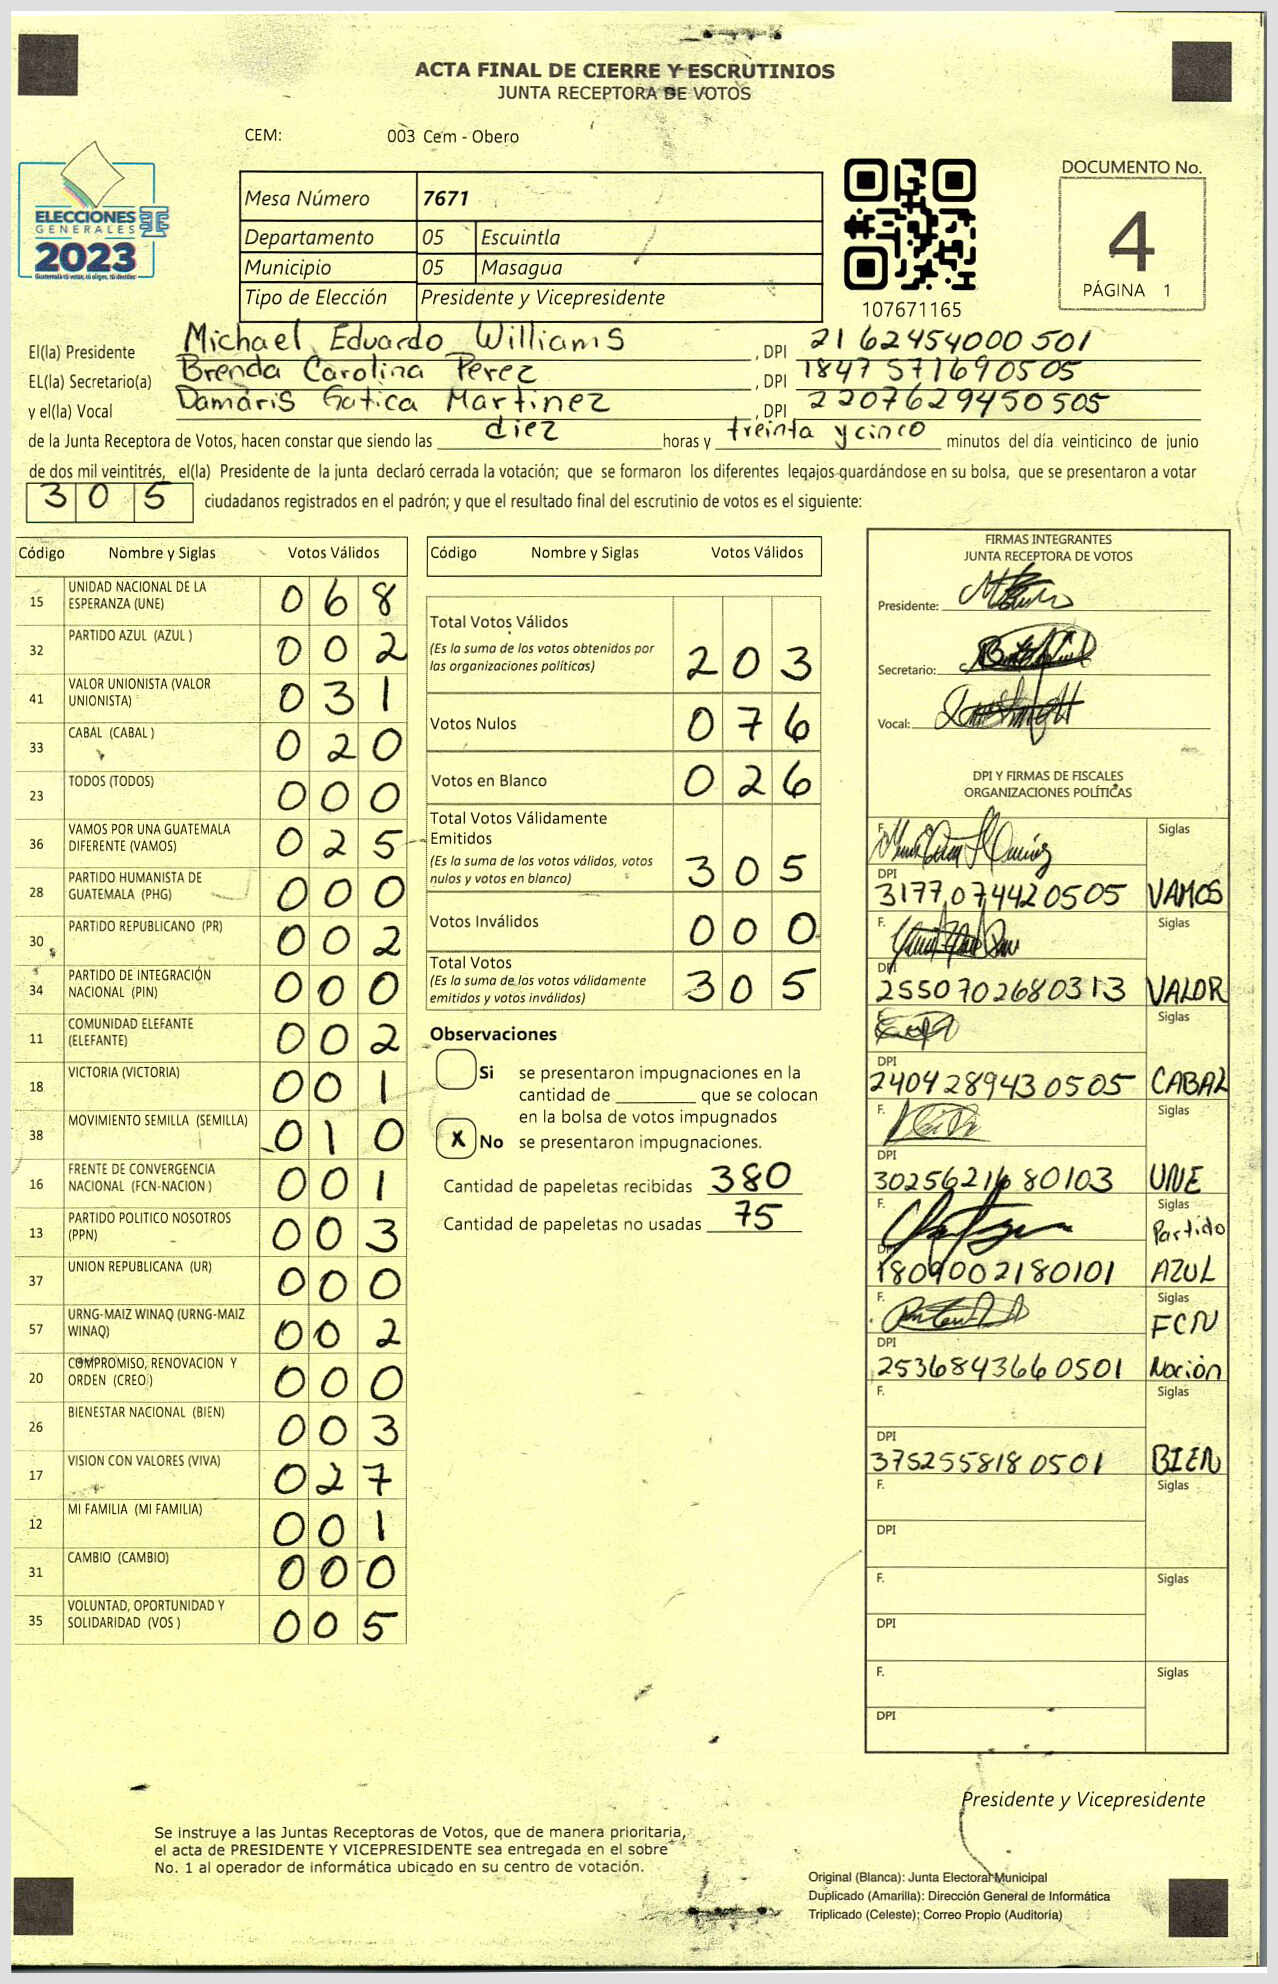 ACTA FINAL DE CIERRE Y ESCRUTINIOS
JUNTA RECEPTORA DE VOTOS
CEM: 003 Cem - Obero
ELECCIONES
GENERALES
2023
Guatemala tú votas, tú eliges, tú decides
Mesa Número 7671
Departamento 05 Escuintla
Municipio 05 Masagua
Tipo de Elección Presidente y Vicepresidente
107671165
DOCUMENTO No.
4
PÁGINA 1
El(la) Presidente Michael Eduardo Williams , DPI 2162454000501
EL(la) Secretario(a) Brenda Carolina Perez , DPI 1847571690505
y el(la) Vocal Damaris Gatica Martinez , DPI 2207629450505
de la Junta Receptora de Votos, hacen constar que siendo las diez horas y treinta y cinco minutos del día veinticinco de junio
de dos mil veintitrés, el(la) Presidente de la junta declaró cerrada la votación; que se formaron los diferentes legajos guardándose en su bolsa, que se presentaron a votar
305 ciudadanos registrados en el padrón; y que el resultado final del escrutinio de votos es el siguiente:
Código Nombre y Siglas Votos Válidos
15 UNIDAD NACIONAL DE LA ESPERANZA (UNE) 068
32 PARTIDO AZUL (AZUL ) 002
41 VALOR UNIONISTA (VALOR UNIONISTA) 031
33 CABAL (CABAL ) 020
23 TODOS (TODOS) 000
36 VAMOS POR UNA GUATEMALA DIFERENTE (VAMOS) 025
28 PARTIDO HUMANISTA DE GUATEMALA (PHG) 000
30 PARTIDO REPUBLICANO (PR) 002
34 PARTIDO DE INTEGRACIÓN NACIONAL (PIN) 000
11 COMUNIDAD ELEFANTE (ELEFANTE) 002
18 VICTORIA (VICTORIA) 001
38 MOVIMIENTO SEMILLA (SEMILLA) 010
16 FRENTE DE CONVERGENCIA NACIONAL (FCN-NACION ) 001
13 PARTIDO POLITICO NOSOTROS (PPN) 003
37 UNION REPUBLICANA (UR) 000
57 URNG-MAIZ WINAQ (URNG-MAIZ WINAQ) 002
20 COMPROMISO, RENOVACION Y ORDEN (CREO ) 000
26 BIENESTAR NACIONAL (BIEN) 003
17 VISION CON VALORES (VIVA) 027
12 MI FAMILIA (MI FAMILIA) 001
31 CAMBIO (CAMBIO) 000
35 VOLUNTAD, OPORTUNIDAD Y SOLIDARIDAD (VOS ) 005
Código Nombre y Siglas Votos Válidos
Total Votos Válidos 203
(Es la suma de los votos obtenidos por
las organizaciones políticas)
Votos Nulos 076
Votos en Blanco 026
Total Votos Válidamente
Emitidos 305
(Es la suma de los votos válidos, votos
nulos y votos en blanco)
Votos Inválidos 000
Total Votos 305
(Es la suma de los votos válidamente
emitidos y votos inválidos)
Observaciones
Si se presentaron impugnaciones en la
cantidad de ________ que se colocan
en la bolsa de votos impugnados
X No se presentaron impugnaciones.
Cantidad de papeletas recibidas 380
Cantidad de papeletas no usadas 75
FIRMAS INTEGRANTES
JUNTA RECEPTORA DE VOTOS
Presidente:
Secretario:
Vocal:
DPI Y FIRMAS DE FISCALES
ORGANIZACIONES POLÍTICAS
F. Siglas
DPI
3177074420505 VAMOS
F. Siglas
DPI
2550702680313 VALOR
F. Siglas
DPI
2404289430505 CABAL
F. Siglas
DPI
3025621680103 UNE
F. Siglas
Partido
DPI
1809002180101 AZUL
F. Siglas
FCN
DPI
2536843660501 Nación
F. Siglas
DPI
3752558180501 BIEN
F. Siglas
DPI
F. Siglas
DPI
F. Siglas
DPI
Presidente y Vicepresidente
Se instruye a las Juntas Receptoras de Votos, que de manera prioritaria,
el acta de PRESIDENTE Y VICEPRESIDENTE sea entregada en el sobre
No. 1 al operador de informática ubicado en su centro de votación.
Original (Blanca): Junta Electoral Municipal
Duplicado (Amarilla): Dirección General de Informática
Triplicado (Celeste): Correo Propio (Auditoría)